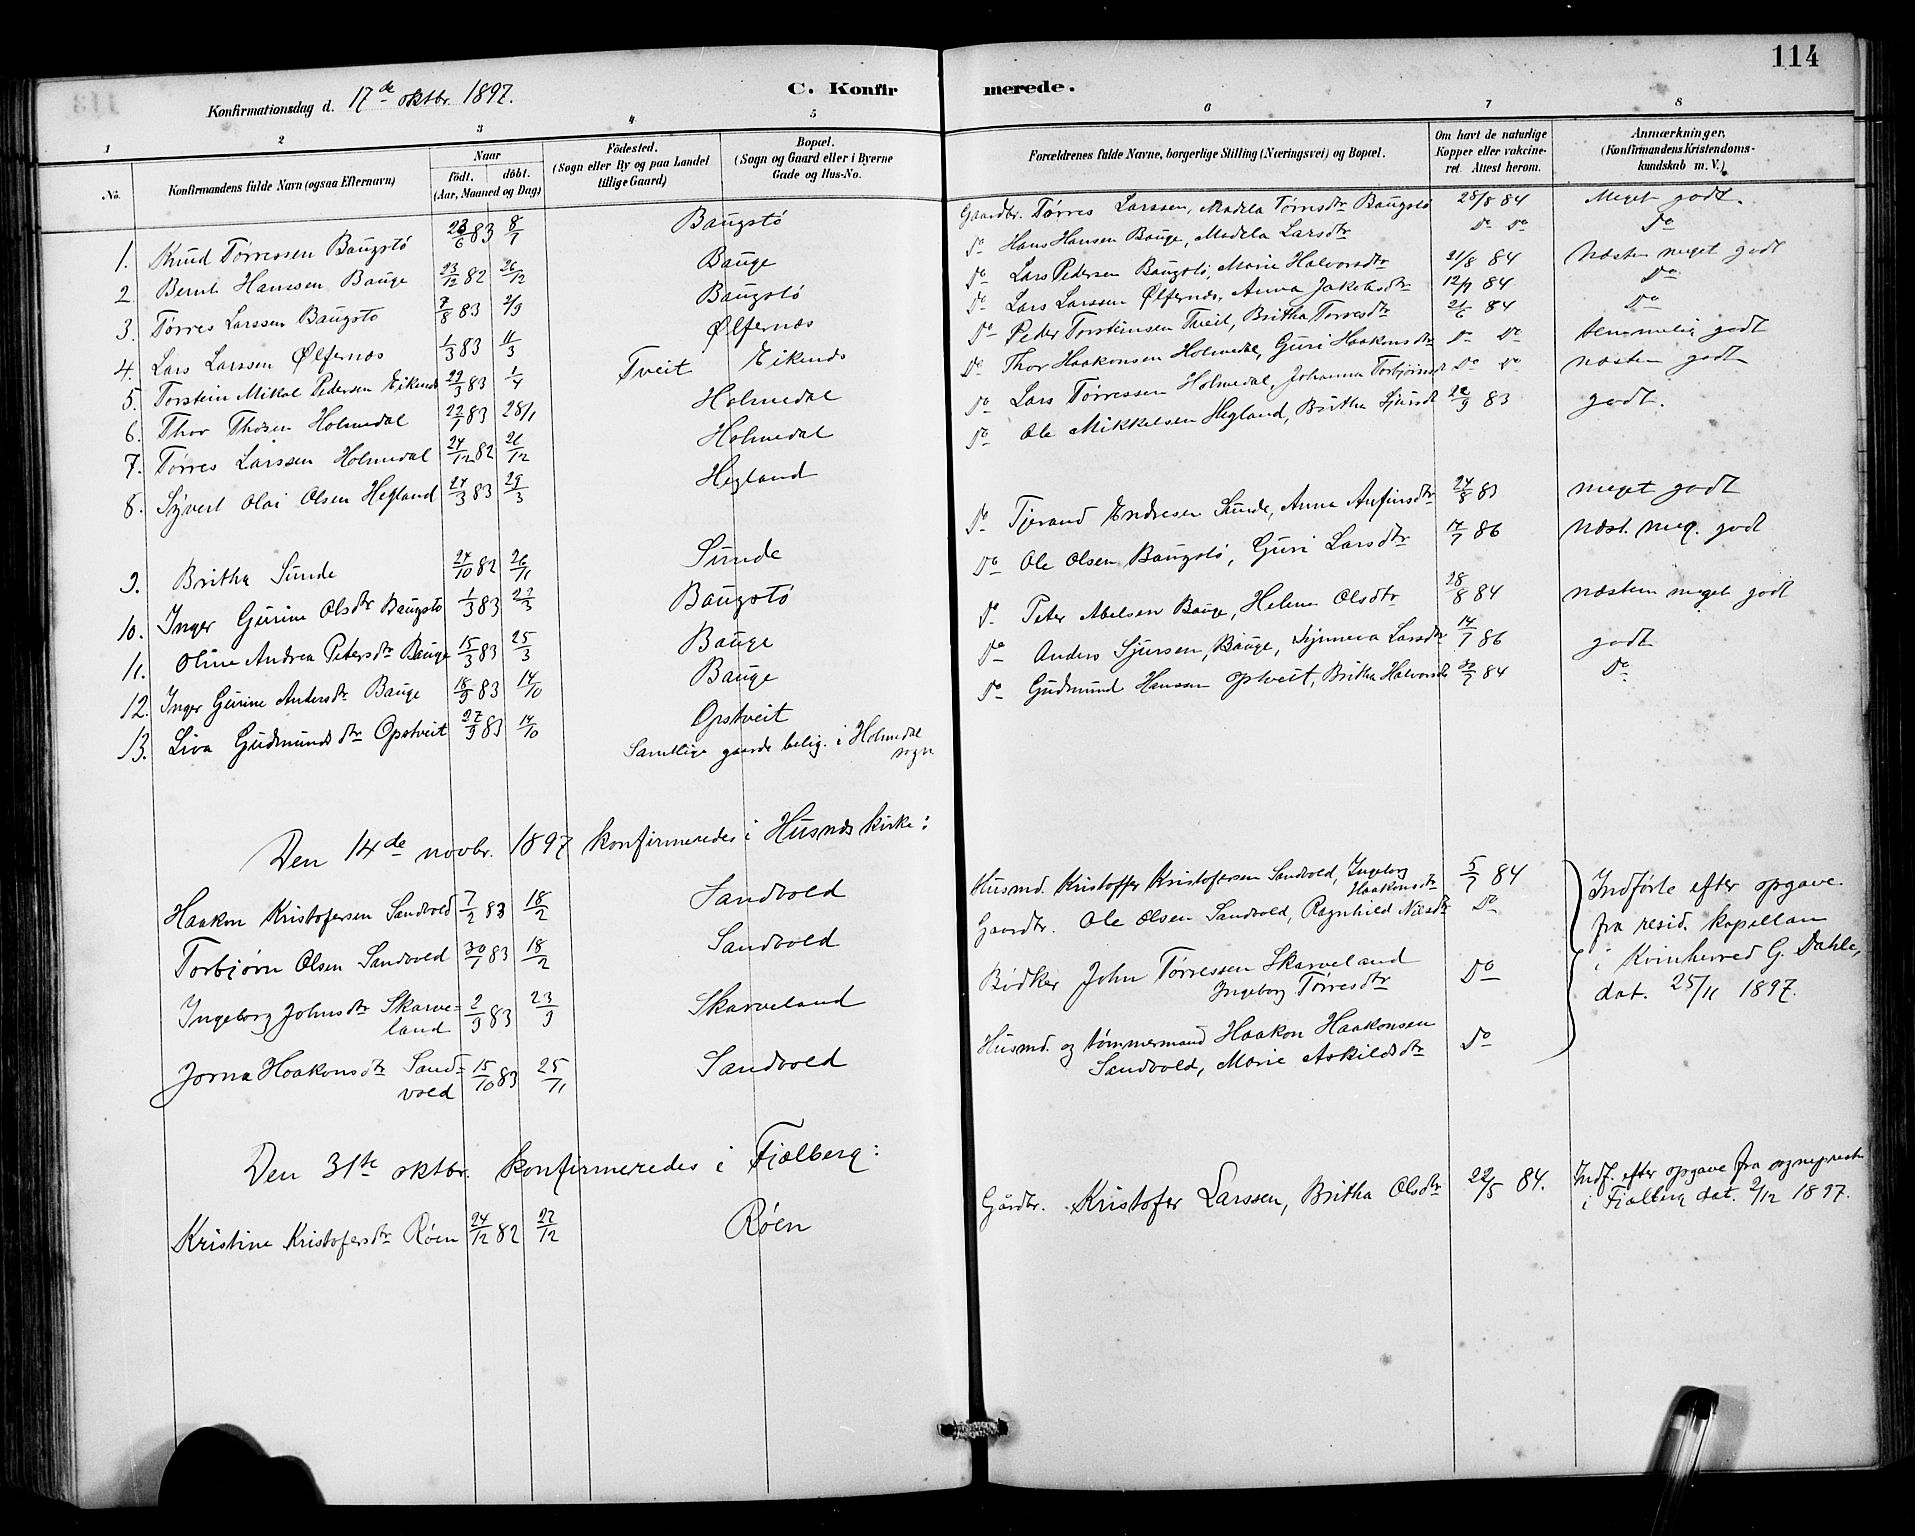 114
Konfirmationsdag d. 17de oktbr. 1897.
C. Konfirmerede.
1 2 3 4 5 6 7 8
No.
Konfirmandens fulde Navn (ogsaa Efternavn)
Naar
födt. döbt.
(Aar, Maaned og Dag)
Födested.
(Sogn eller By og paa Landet
tillige Gaard)
Bopæl.
(Sogn og Gaard eller i Byerne
Gade og Hus-No.
Forældrenes fulde Navne, borgerlige Stilling (Næringsvei) og Bopæl.
Om havt de naturlige
Kopper eller vakcine-
ret. Attest herom.
Anmærkninger.
(Konfirmandens Kristendoms-
kundskab m. V.)
1. Knud Tørressen Baugstø 23/6 83 8/7 Baugstø Gaardbr. Tørres Larssen, Madila Tørresdtr Baugstø 28/8 84 Meget godt.
2 Bernt Hanssen Bauge 23/12 82 26/12 Bauge Do Hans Hansen Bauge, Madila Larsdtr Do Do Do
3. Tørres Larssen Baugstø 7/8 83 2/9 Baugstø Do Lars Pedersen Baugstø, Marie Halvorsdtr 21/8 84 Næsten meget godt
4. Lars Larssen Ølfernæs 1/3 83 11/3 Ølfernæs Do Lars Larssen Ølfernæs, Anna Jakobsdtr 12/9 84 Do
5. Torstein Mikal Petersen Eikenæs 29/3 83 1/4 Tveit Eikenæs Do Peter Torsteinsen Tveit, Britha Torresdtr 21/6 84 Do
6. Thor Thosen Holmedal 22/1 83 28/1 Holmedal Do Thor Haakonsen Holmedal, Guri Haakonsdtr Do Do temmelig godt
7. Tørres Larssen Holmedal 24/12 82 26/12 Holmedal Do Lars Tørressen Holmedal, Johanna Torbjørnsdt Do Do næsten godt
8. Syvert Olai Olsen Hegland 24/3 83 29/3 Hegland Do Ole Mikkelsen Hegland, Britha Sjursdt 22/9 83 godt.
9. Britha Sunde 27/10 82 26/11 Sunde Do Tjerand Endresen Sunde, Anna Anfinsdtr 24/8 83 meget godt
10. Inger Gurine Olsdtr Baugstø 1/3 83 27/3 Baugstø Do Ole Olsen Baugstø, Guri Larsdtr 14/7 86 næst. meg. godt
11. Oline Andrea Petersdtr Bauge 15/3 83 25/3 Bauge Do Peter Abelsen Bauge, Helene Olsdtr 28/8 84 næsten meget godt
12. Inger Gurine Andersdtr Bauge 18/9 83 14/10 Bauge Do Anders Sjursen, Bauge, Synneva Larsdtr 14/7 86 godt
13. Liva Gudmundsdtr Opstveit 27/9 83 14/10 Opstveit Do Gudmund Hanssen Opstveit, Britha Halvorsdtr 22/7 84 Do
Samtlige gaarde belig. i Holmedal
sogn
Den 14de novbr. 1897 konfirmeredes i Husnæs kirke:
Haakon Kristofersen Sandvold 7/2 83 18/2 Sandvold Husmd. Kristoffer Kristofersen Sandvold, Ingeborg
Haakonsdtr 5/7 84
Torbjørn Olsen Sandvold 30/1 83 18/2 Sandvold Gaardbr. Ole Olsen Sandvold, Ragnhild Nilsdtr Do
Ingeborg Johnsdtr Skarve-
land 2/9 83 23/9 Skarveland Bødker John Tørressen Skarveland
Ingeborg Tørresdtr Do
Jorna Haakonsdtr Sand-
vold 15/10 83 25/11 Sandvold Husmd. og tømmermand Haakon Haakonsen
Sandvold, Marie Askildsdtr Do
Indførte efter opgave
fra resid. kapellan
i Kvinherred G. Dahle,
dat. 25/11 1897.
Den 31te oktbr. konfirmeredes i Fjælberg:
Kristine Kristofersdtr Røen 24/12 82 27/12 Røen Gårdbr. Kristofer Larssen, Britha Olsdtr 22/5 84. Indf. efter opgave fra sognepresten
i Fjælberg dat. 2/12 1897.